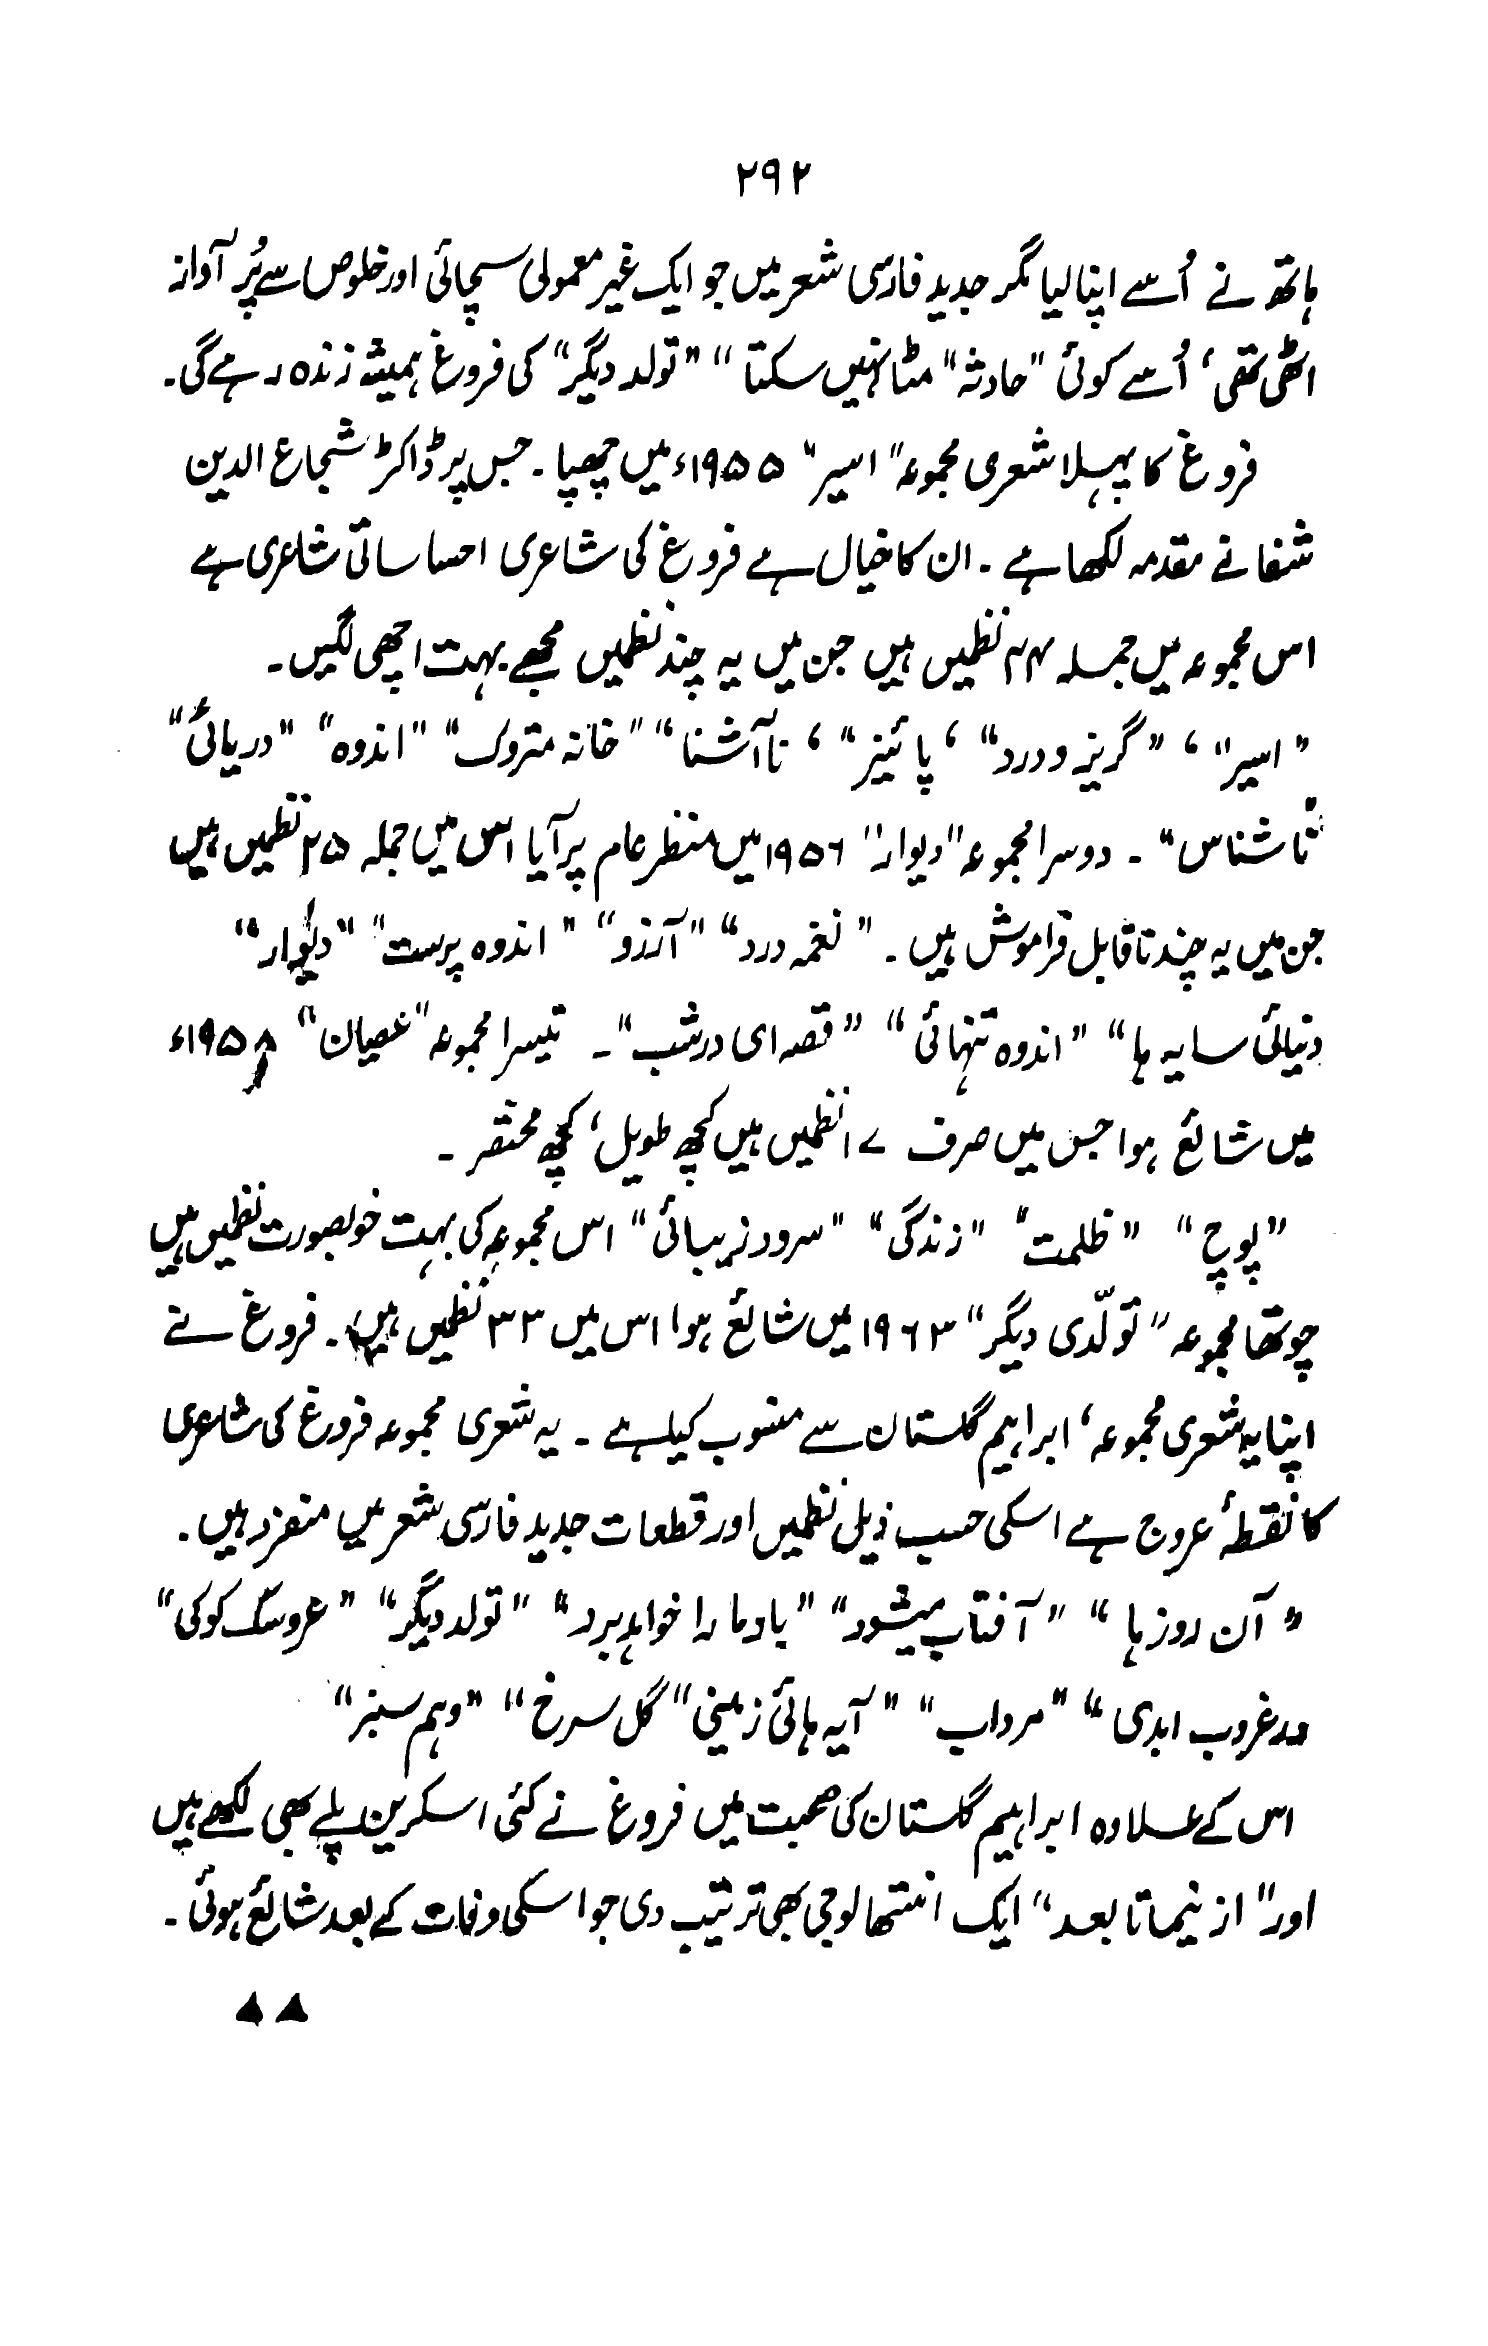 ۲۹۲
ہاتھ نے اُسے اپنا لیا مگر جدید فارسی شعر میں جو ایک غیر معمولی سچائی اور خلوص سے پُر آواز
اٹھی تھی، اُسے کوئی "حادثہ" مٹا نہیں سکتا" "تولد دیگر" کی فروغ ہمیشہ زندہ رہے گی۔
فروغ کا پہلا شعری مجموعہ "اسیر" ۱۹۵۵ء میں چھپا۔ جس پر ڈاکٹر شجاع الدین
شفا نے مقدمہ لکھا ہے۔ ان کا خیال ہے فروغ کی شاعری احساساتی شاعری ہے
اس مجموعہ میں جملہ ۴۴ نظمیں ہیں جن میں یہ چند نظمیں مجھے بہت اچھی لگیں۔
"اسیر"، "گریز و درد"، پائیز"، ناآشنا" "خانہ متروک" "اندوہ" "دریائی"
"ناشناس"۔ دوسرا مجموعہ "دیوار" ۱۹۵۶ میں منظر عام پر آیا اس میں جملہ ۲۵ نظمیں ہیں
جن میں یہ چند ناقابل فراموش ہیں۔ "نغمہ درد" "آرزو" "اندوہ پرست" "دیوار"
دنیائی سایہ ہا" "اندوہ تنہائی" "قصہ ای در شب"۔ تیسرا مجموعہ "عصیان" ۱۹۵۸ء
میں شائع ہوا جس میں صرف ۱۷ نظمیں ہیں کچھ طویل، کچھ مختصر۔
"پوچ" "ظلمت" "زندگی" "سرود زیبائی" اس مجموعہ کی بہت خوبصورت نظمیں ہیں
چوتھا مجموعہ "تولّدی دیگر" ۱۹۶۳ میں شائع ہوا اس میں ۳۳ نظمیں ہیں۔ فروغ نے
اپنا یہ شعری مجموعہ، ابراہیم گلستان سے منسوب کیا ہے۔ یہ شعری مجموعہ فروغ کی شاعری
کا نقطۂ عروج ہے اسکی حسب ذیل نظمیں اور قطعات جدید فارسی شعر میں منفرد ہیں۔
"آن روز ہا" "آفتاب میشود" "باد ما را خواہد برد" "تولد دیگر" "عروسک کوکی"
در غروب ابدی" "مرداب" "آیہ ہائی زمینی" گل سرخ" "وہم سبز"
اس کے علاوہ ابراہیم گلستان کی صحبت میں فروغ نے کئی اسکرین پلے بھی لکھے ہیں
اور "از نیما تا بعد" ایک انتھالوجی بھی ترتیب دی جو اسکی وفات کے بعد شائع ہوئی۔